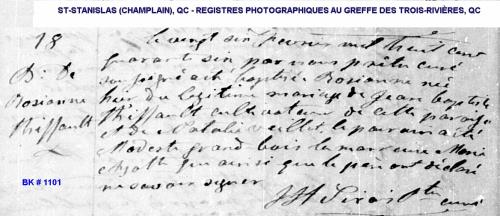 ST-STANISLAS (CHAMPLAIN), QC - REGISTRES PHOTOGRAPHIQUES AU GREFFE DES TROIS-RIVIÈRES, QC
18
Bt. De
Rosianne
Thiffault
BK # 1101
Le vingt six fevrier mil huit cent
quarant six par nous prêtre curé
soussigné a été baptisée Rosianne née
hier, du légitime mariage de Jean baptiste
Thiffault cultivateur de cette paroisse
et de Natalie veillet, le parrain a été
Modeste grand bois la marraine Marie
ainsi que le pere ont déclaré
ne savoir signer
Ptre curé